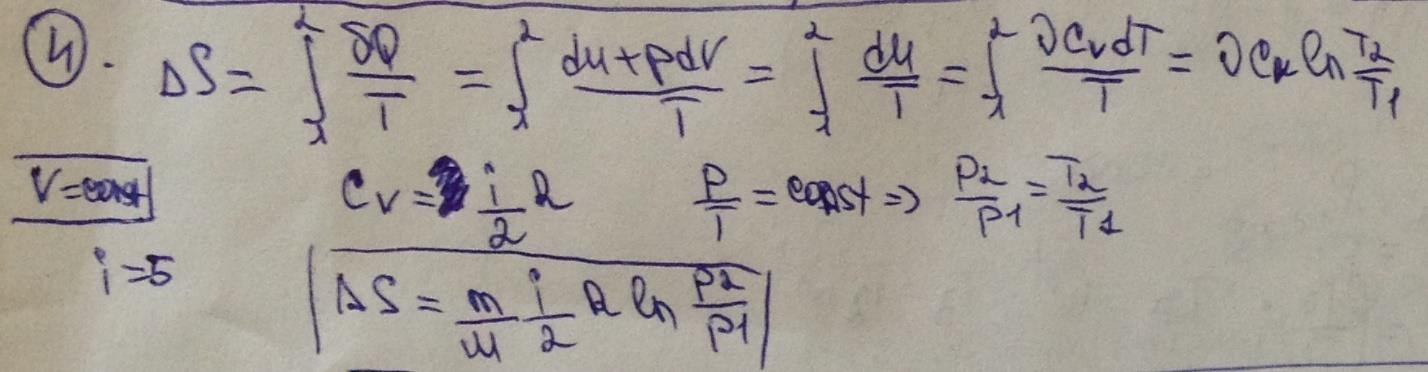 ④. ΔS = ∫₁² δQ/T = ∫₁² (dU + pdV)/T = ∫₁² dU/T = ∫₁² νC_V dT/T = νC_V ln T₂/T₁
V=const C_V = i/2 R P/T = const => P₂/P₁ = T₂/T₁
i=5 ΔS = m/μ i/2 R ln P₂/P₁